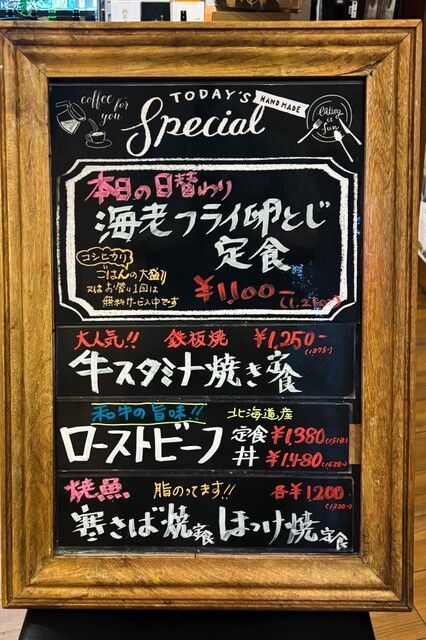 coffee for you
TODAY'S
HANDMADE
Special
Eating is fun
本日の日替わり
海老フライ卵とじ
定食
コシヒカリ
ごはんの大盛り
又はお替り1回は
無料サービス中です
¥1,100-
(1,210-)
大人気!! 鉄板焼 ¥1,250-
(1375-)
牛スタミナ焼き定食
和牛の旨味!! 北海道産
ローストビーフ 定食 ¥1,380(1518)
丼 ¥1,480(1628-)
焼魚 脂のってます!! 各¥1200
(1320-)
寒さば焼定食 ほっけ焼定食